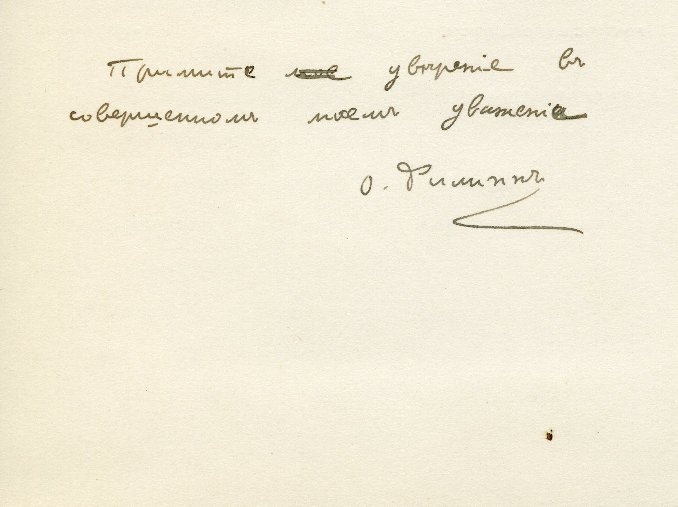 Примите увѣреніе въ
совершенномъ моемъ уваженіи
О.